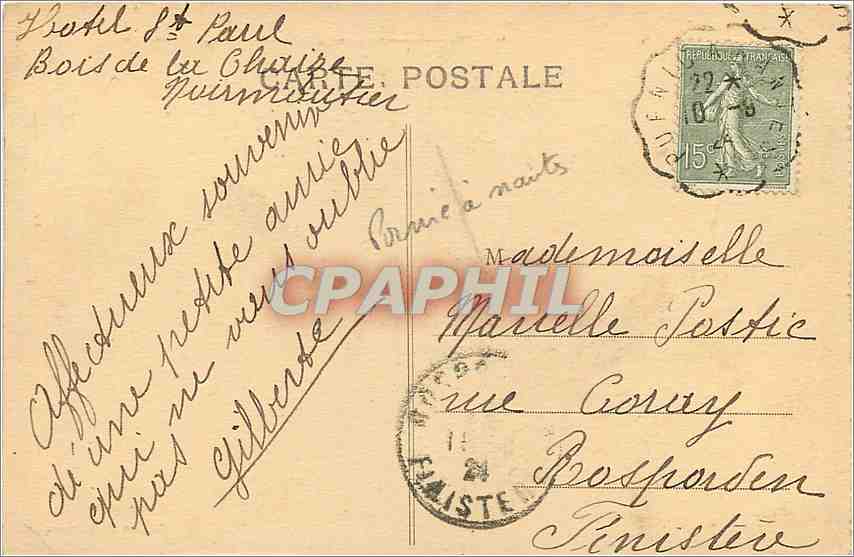 Hotel St Paul
Bois de la Chaize
Noirmoutier
CARTE POSTALE
Affectueux souvenir
d'une petite amie
qui ne vous oublie
pas
Gilberte
Pornic à nantes
CPAPHIL
Mademoiselle
Marcelle Postic
rue Coray
Rosporden
Finistère
REPUBLIQUE FRANÇAISE
15c
22 *
10 - 9
24
*
*
11
24
FINISTERE